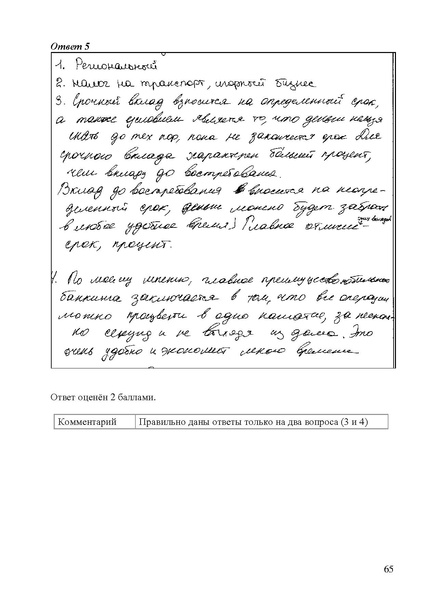 Ответ 5
1. Региональный
2. Налог на транспорт, игорный бизнес
3. Срочный вклад вносится на определенный срок,
а также условием является то, что деньги нельзя
снять до тех пор, пока не закончится срок Для
срочного вклада характерен больший процент,
чем вкладу до востребования.
Вклад до востребования вносится на неопре-
деленный срок, деньги можно будет забрать
в любое удобное время) Главное отличие
этих вкладов
срок, процент.
4. По моему мнению, главное преимущество мобильного
банкинга заключается в том, что все операции
можно провести в одно нажатие, за несколь-
ко секунд и не выходя из дома. Это
очень удобно и экономит много времени
Ответ оценён 2 баллами.
Комментарий
Правильно даны ответы только на два вопроса (3 и 4)
65